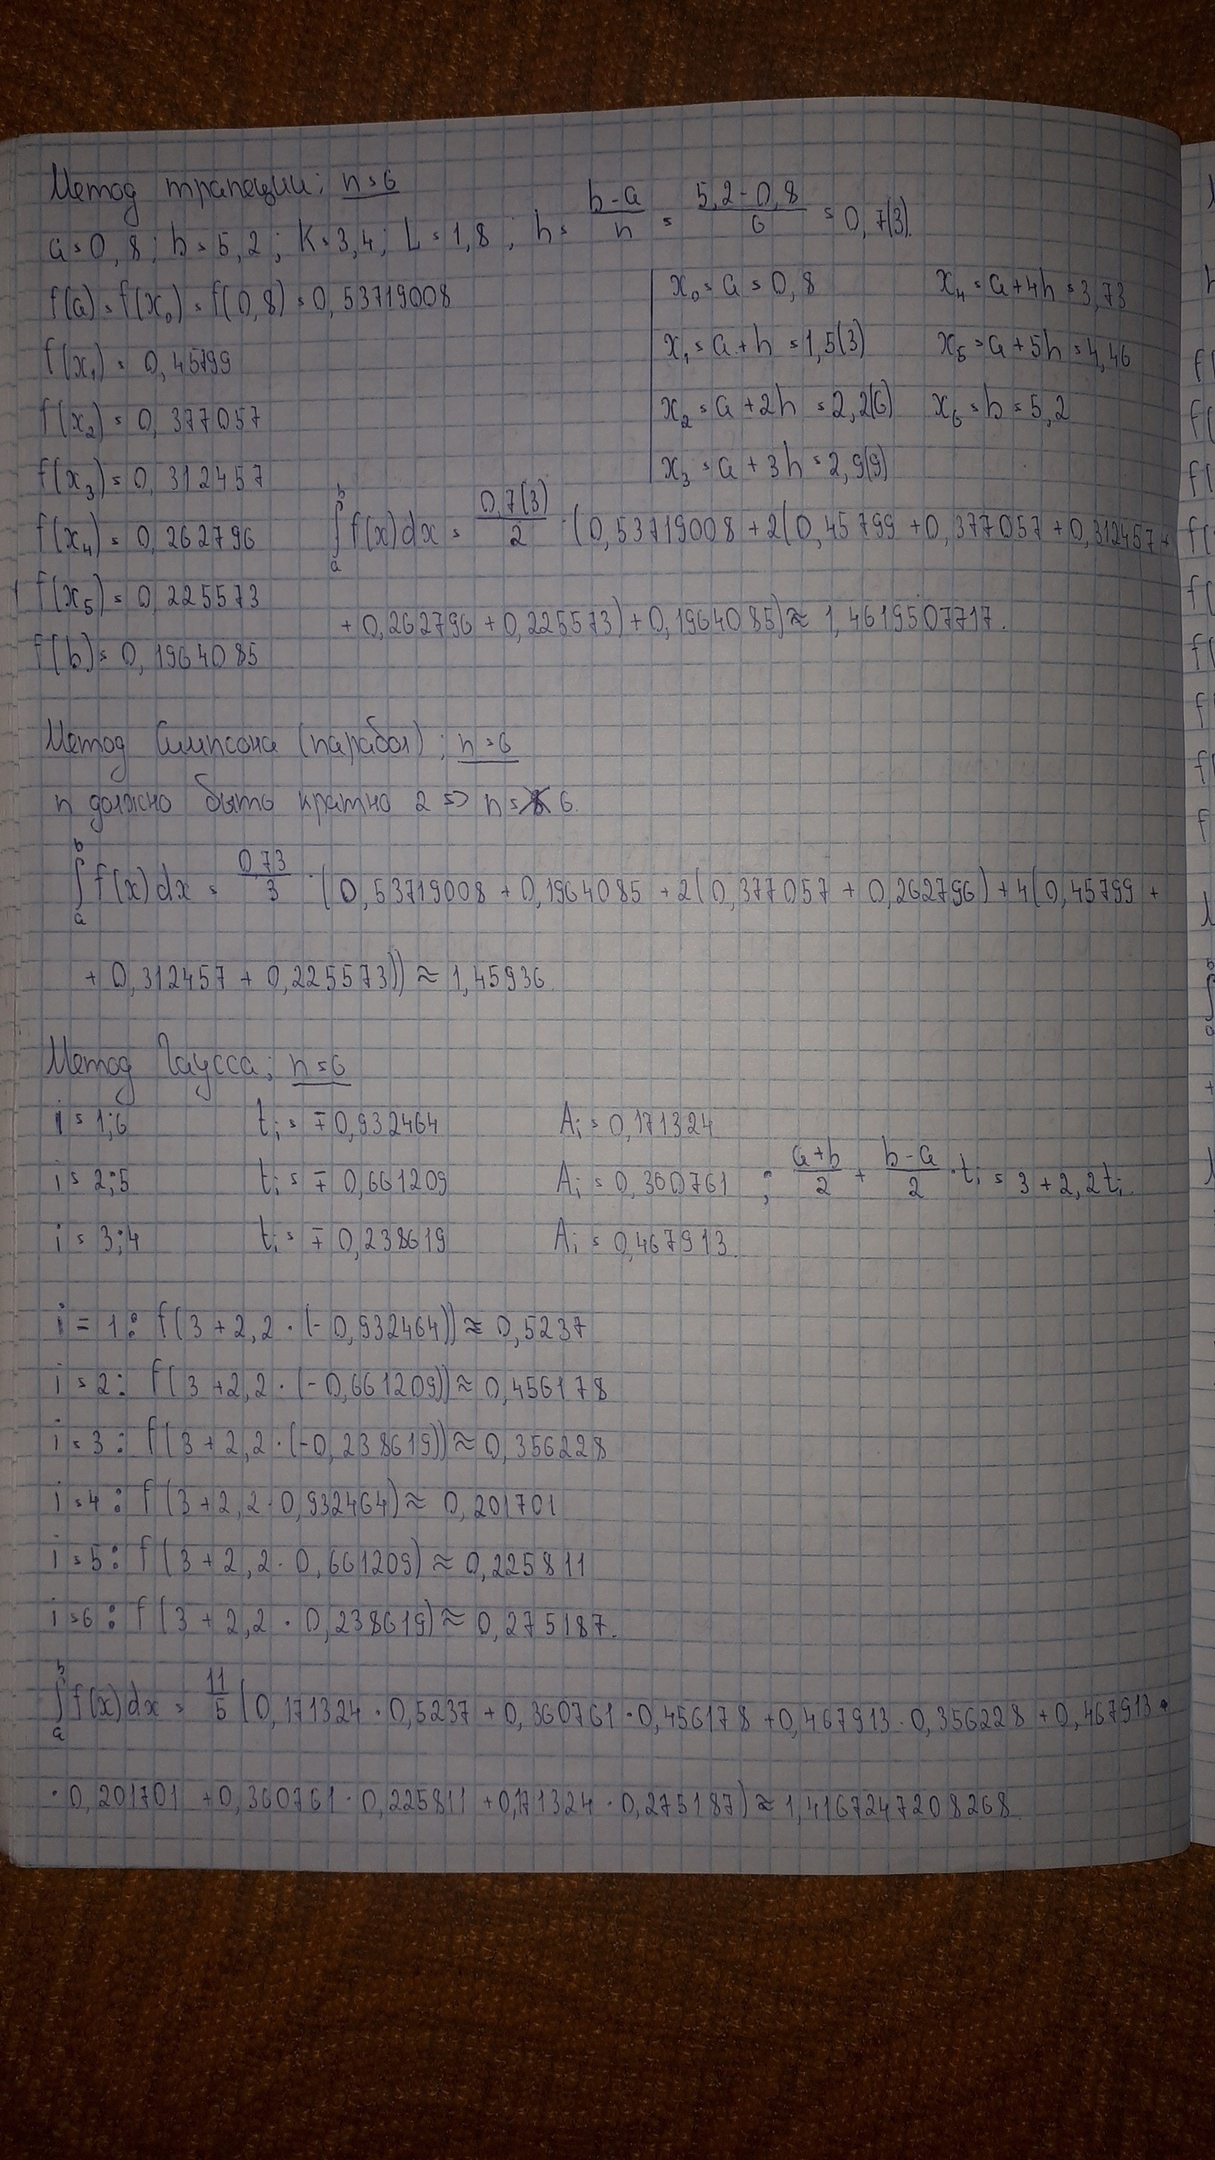 Метод трапеции; n=6
a=0,8; b=5,2; K=3,4; L=1,8; h= (b-a)/n = (5,2-0,8)/6 = 0,7(3).
f(a)=f(x₀)=f(0,8)=0,53719008
x₀=a=0,8 x₄=a+4h=3,73
f(x₁)=0,45799
x₁=a+h=1,5(3) x₅=a+5h=4,46
f(x₂)=0,377057
x₂=a+2h=2,2(6) x₆=b=5,2
f(x₃)=0,312457
x₃=a+3h=2,9(9)
f(x₄)=0,262796
∫ₐᵇ f(x)dx = 0,7(3)/2 · (0,53719008+2(0,45799+0,377057+0,312457+
f(x₅)=0,225573
+0,262796+0,225573)+0,1964085)≈1,4619507717.
f(b)=0,1964085
Метод Симпсона (парабол); n=6
n должно быть кратно 2 => n= 6.
∫ₐᵇ f(x)dx = 0,73/3 · (0,53719008+0,1964085+2(0,377057+0,262796)+4(0,45799+
+0,312457+0,225573))≈1,45936.
Метод Гаусса; n=6
i=1;6 tᵢ=∓0,932464 Aᵢ=0,171324
i=2;5 tᵢ=∓0,661209 Aᵢ=0,360761 ; (a+b)/2 + (b-a)/2 · tᵢ = 3+2,2tᵢ.
i=3;4 tᵢ=∓0,238619 Aᵢ=0,467913.
i=1: f(3+2,2·(-0,932464))≈0,5237
i=2: f(3+2,2·(-0,661209))≈0,456178
i=3: f(3+2,2·(-0,238619))≈0,356228
i=4: f(3+2,2·0,932464)≈0,201701
i=5: f(3+2,2·0,661209)≈0,225811
i=6: f(3+2,2·0,238619)≈0,275187.
∫ₐᵇ f(x)dx = 11/5 (0,171324·0,5237+0,360761·0,456178+0,467913·0,356228+0,467913·
·0,201701+0,360761·0,225811+0,171324·0,275187)≈1,4167247208268